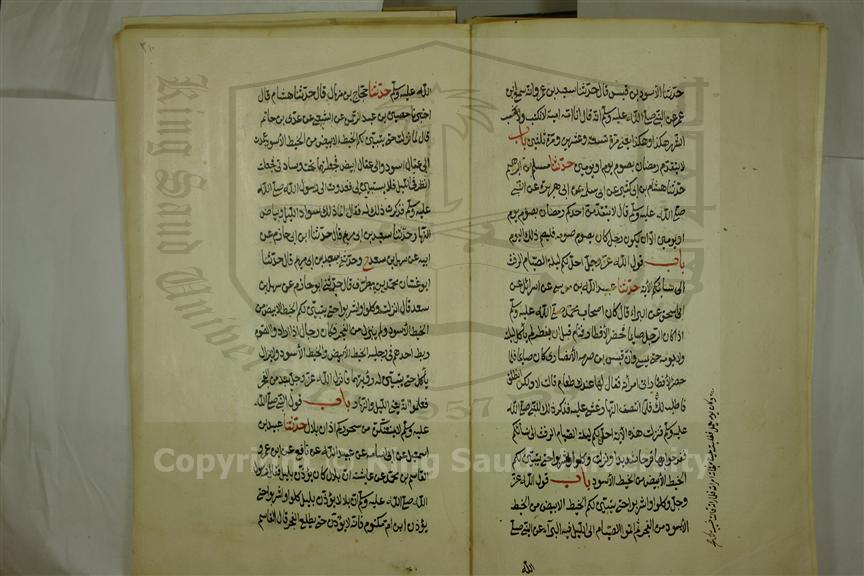 حدثنا الأسود بن قيس قال حدثنا سعيد بن عمرو انه سمع ابن
عمر عن النبي صلى الله عليه وسلم انه قال انا امة امية لا نكتب ولا نحسب
الشهر هكذا وهكذا يعني مرة تسعة وعشرين ومرة ثلثين باب
لا يتقدم رمضان بصوم يوم او يومين حدثنا مسلم بن ابراهيم
حدثنا هشام بن ابي كثير عن ابي سلمة عن ابي هريرة عن النبي
صلى الله عليه وسلم قال لا يتقدمن احدكم رمضان بصوم يوم
او يومين الا ان يكون رجل كان يصوم صومه فليصم ذلك اليوم
باب قول الله عز وجل احل لكم ليلة الصيام الرفث
الى نسائكم الاية حدثنا عبيد الله بن موسى عن اسرائيل عن
ابي اسحق عن البراء قال كان اصحاب محمد صلى الله عليه وسلم
اذا كان الرجل صايما فحضر الافطار فنام قبل ان يفطر لم يأكل ليلته
ولا يومه حتى يمسي وان قيس بن صرمة الانصاري كان صايما فلما
حضر الافطار اتى امرأته فقال لها اعندك طعام قالت لا ولكن انطلق
فاطلب لك فلما انتصف النهار غشي عليه فذكر ذلك للنبي صلى الله
عليه وسلم فنزلت هذه الاية احل لكم ليلة الصيام الرفث الى نسائكم
ففرحوا بها فرحا شديدا ونزلت وكلوا واشربوا حتى يتبين لكم
الخيط الابيض من الخيط الأسود باب قول الله عز
وجل وكلوا واشربوا حتى يتبين لكم الخيط الابيض من الخيط
الأسود من الفجر ثم اتموا الصيام الى الليل فيه البراء عن النبي صلى
الله
الله عليه وسلم حدثنا حجاج بن منهال قال حدثنا هشام قال
اخبرني حصين بن عبد الرحمن عن الشعبي عن عدي بن حاتم
قال لما نزلت حتى يتبين لكم الخيط الابيض من الخيط الأسود عمدت
الى عقال اسود والى عقال ابيض فجعلتهما تحت وسادتي فجعلت
انظر في الليل فلا يستبين لي فغدوت الى رسول الله صلى الله
عليه وسلم فذكرت ذلك له فقال انما ذلك سواد الليل وبياض
النهار حدثنا سعيد بن ابي مريم قال حدثنا ابن ابي حازم عن
ابيه عن سهل بن سعد ح وحدثني سعيد بن ابي مريم قال حدثنا
ابو غسان محمد بن مطرف قال حدثني ابو حازم عن سهل بن
سعد قال انزلت وكلوا واشربوا حتى يتبين لكم الخيط الابيض من
الخيط الأسود ولم ينزل من الفجر فكان رجال اذا ارادوا الصوم
ربط احدهم في رجليه الخيط الأبيض والخيط الأسود ولا يزال
يأكل حتى يتبين له رؤيتهما فانزل الله عز وجل بعد من الفجر
فعلموا انه يعني الليل والنهار باب قول النبي صلى الله
عليه وسلم لا يمنعنكم من سحوركم اذان بلال حدثنا عبيد بن
اسمعيل عن ابي اسامة عن عبيد الله عن نافع عن ابن عمر و
القاسم بن محمد عن عائشة ان بلالا كان يؤذن بليل فقال رسول
الله صلى الله عليه وسلم ان بلالا يؤذن بليل كلوا واشربوا حتى
يؤذن ابن ام مكتوم فانه لا يؤذن حتى يطلع الفجر قال القاسم
King Saud University
1957
Copyright © King Saud University